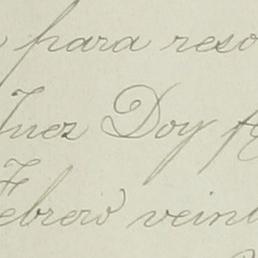 para reso
Juez Doy f
Febrero vein